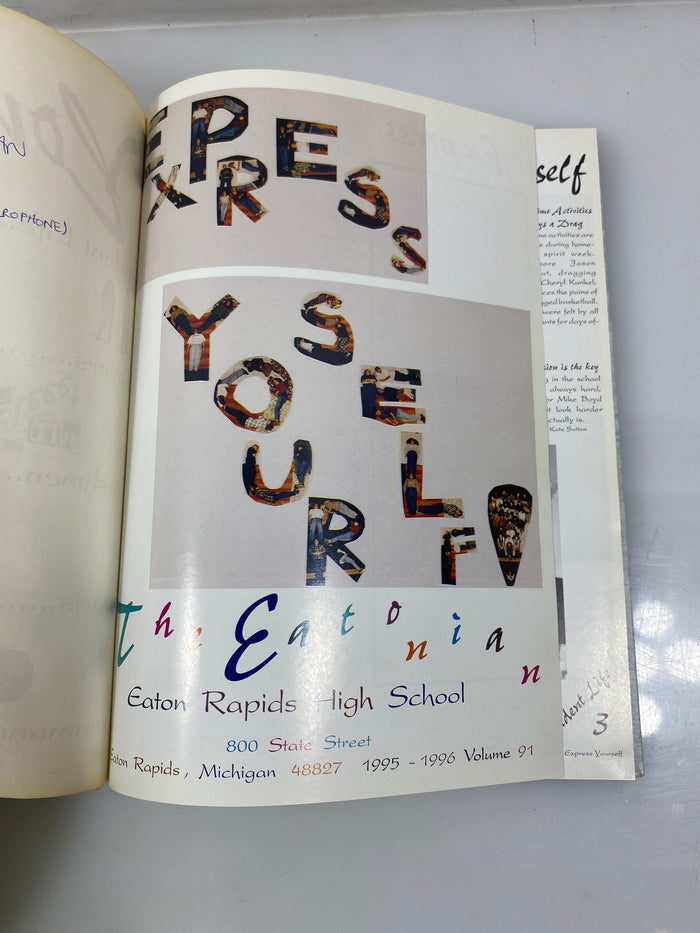 AN
ROPHONE)
EXPRESS
YOURSELF!
The Eatonian
Eaton Rapids High School
800 State Street
Eaton Rapids, Michigan 48827 1995 - 1996 Volume 91
self
ime Activities
ys a Drag
me activities are
e during home-
spirit week.
more Jason
ut, dragging
Cheryl Kunkel,
ces the pains of
gged basketball.
were felt by all
nts for days af-
tion is the key
g in the school
always hard;
or Mike Boyd
it look harder
ctually is.
Kate Sutton
dent Life
3
Express Yourself